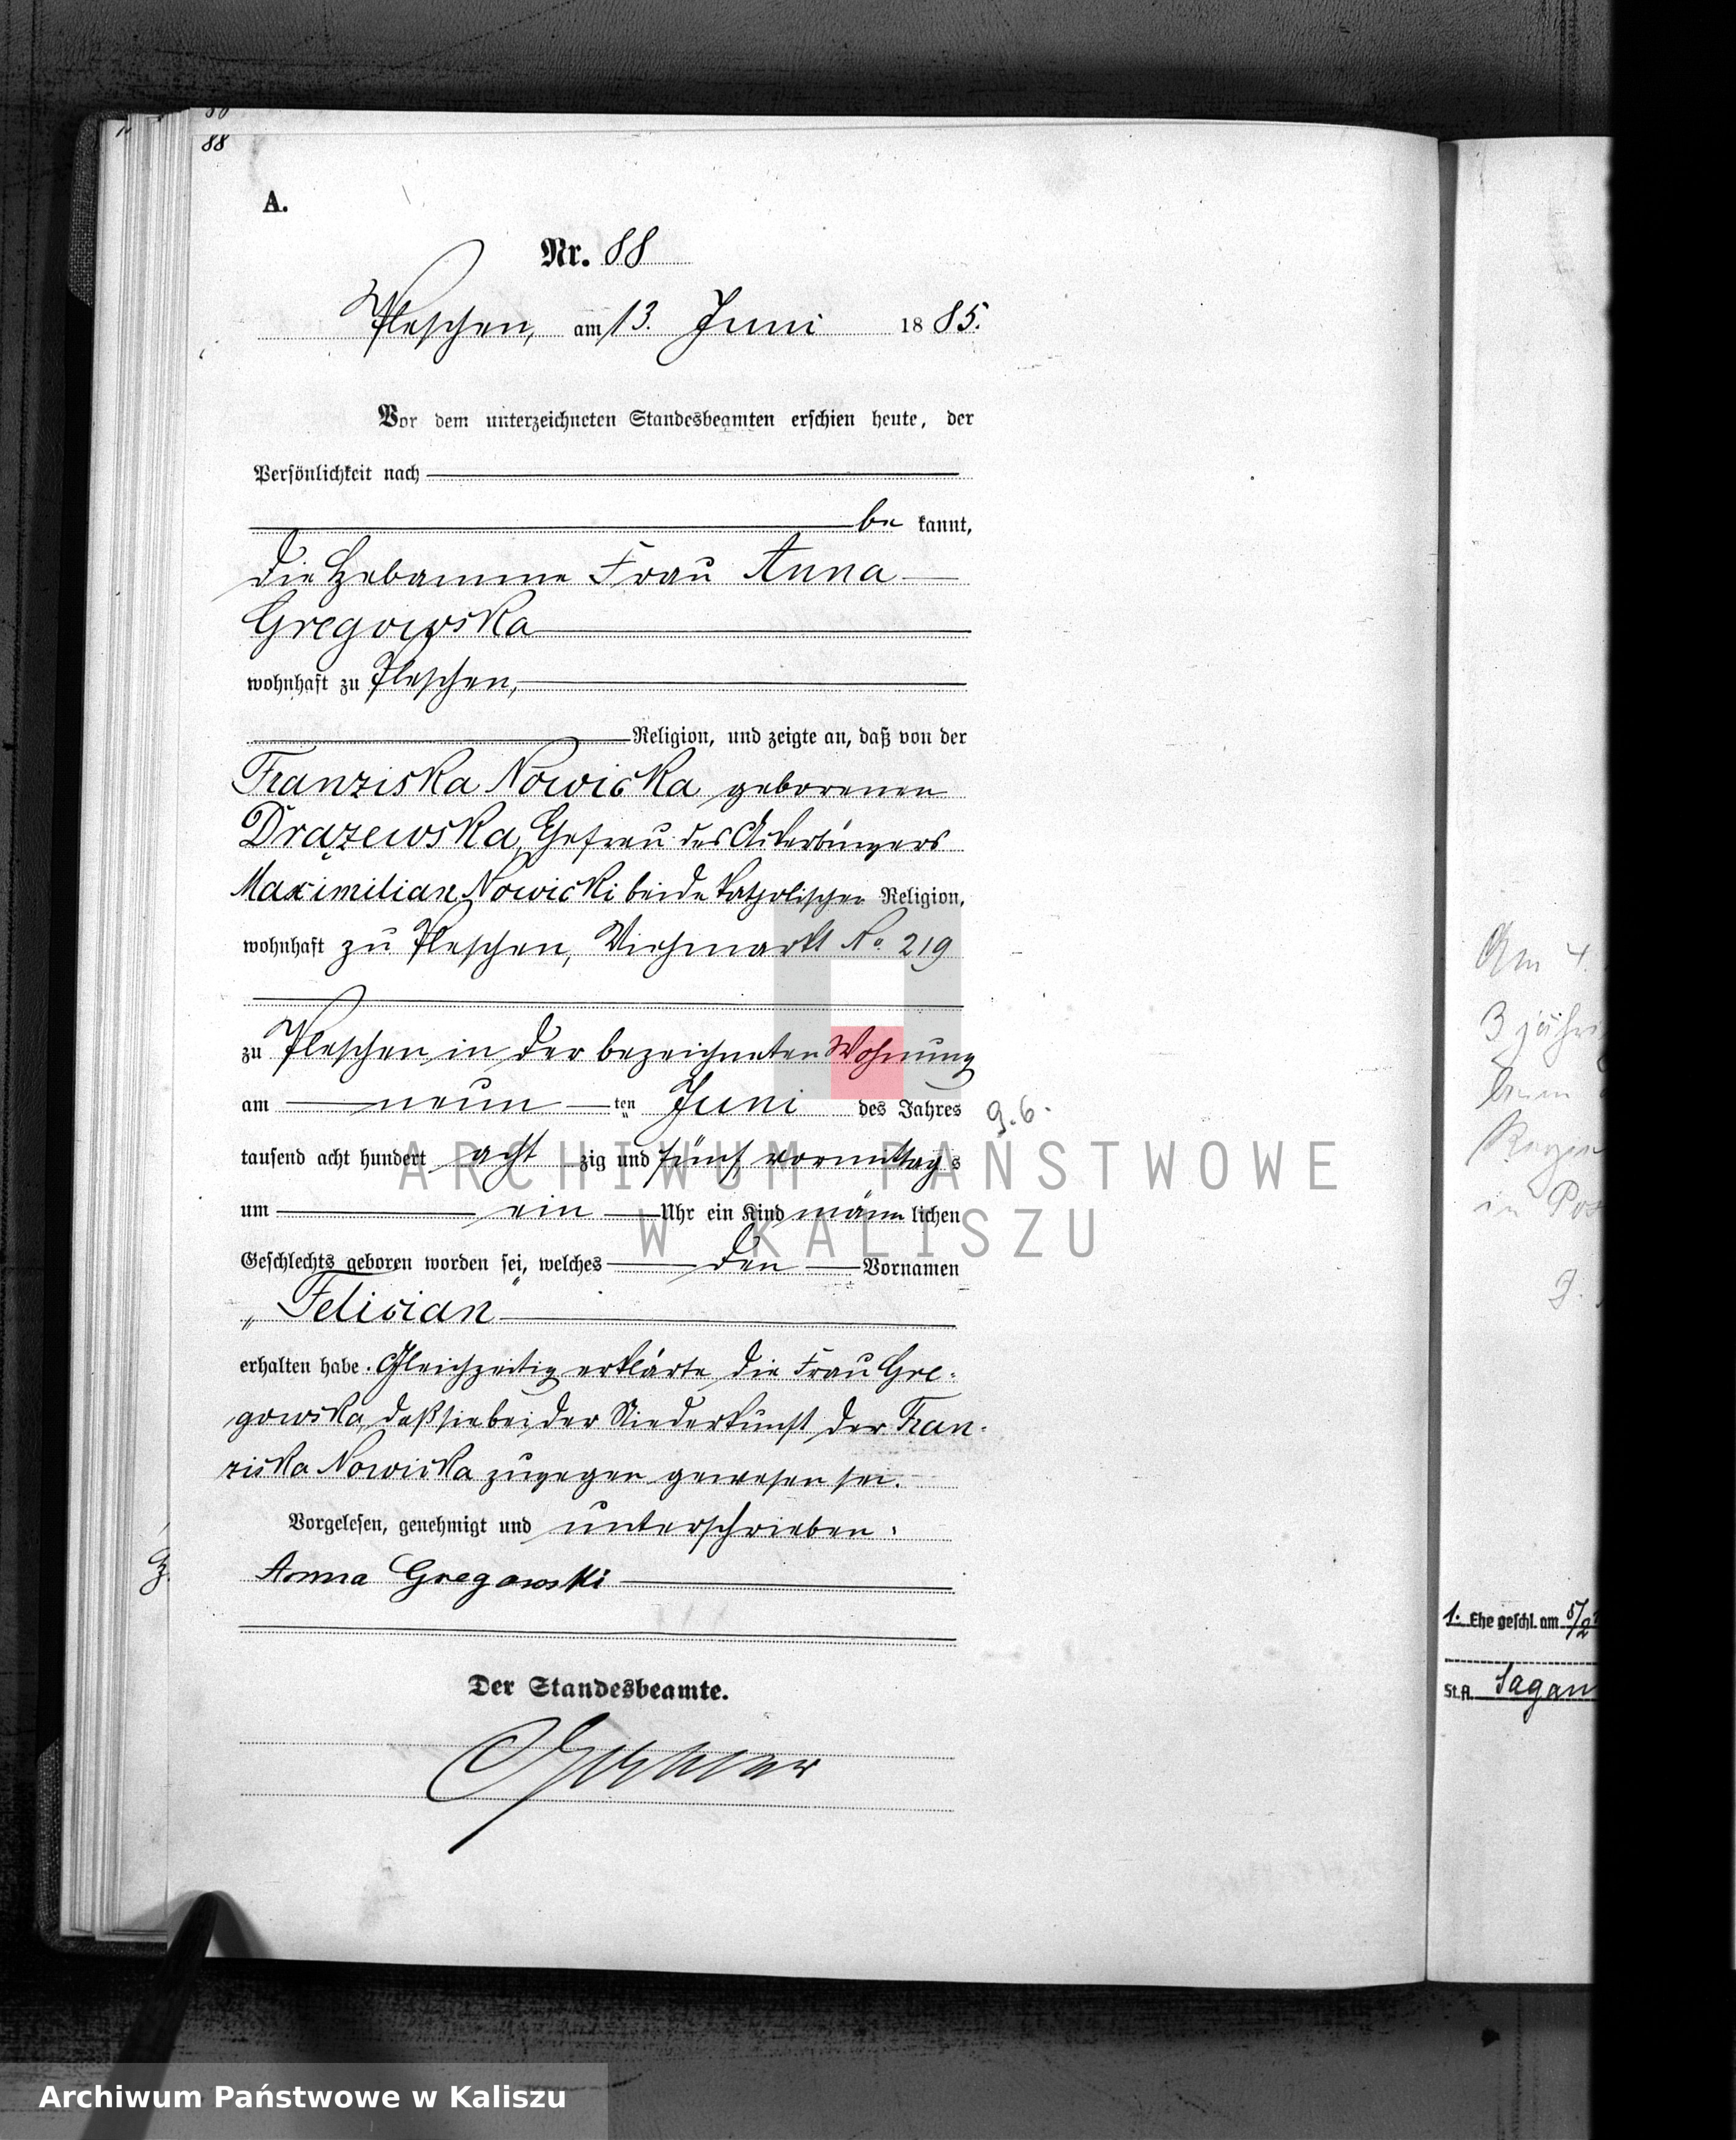 88
A.
Nr. 88
Pleschen, am 13. Juni 1885.
Vor dem unterzeichneten Standesbeamten erschien heute, der
Persönlichkeit nach
be kannt,
die Hebamme Frau Anna
Gregowska
wohnhaft zu Pleschen,
Religion, und zeigte an, daß von der
Franziska Nowicka geborenen
Drążewska, Ehefrau des Ackerbürgers
Maximilian Nowicki beide katholischer Religion,
wohnhaft zu Pleschen, Viehmarkt No. 219
zu Pleschen in der bezeichneten Wohnung
am neun ten Juni des Jahres 9.6.
tausend acht hundert acht zig und fünf vormittag s
um ein Uhr ein Kind männ lichen
Geschlechts geboren worden sei, welches den Vornamen
„Felician"
erhalten habe. Gleichzeitig erklärte die Frau Gre-
gowska, daß sie bei der Niederkunft der Fran-
ziska Nowicka zugegen gewesen sei.
Vorgelesen, genehmigt und unterschrieben:
Anna Gregowski
Der Standesbeamte.
Am 4.
3 jähri
in Pos
1. Ehe geschl. am 5/2
St.A. Sagan
ARCHIWUM PAŃSTWOWE
W KALISZU
Archiwum Państwowe w Kaliszu